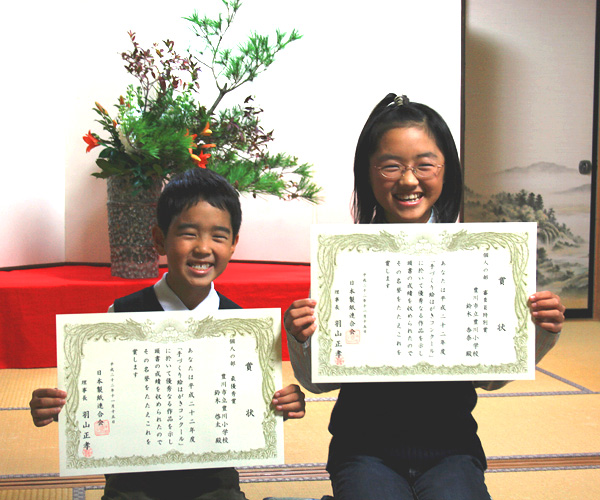 賞状
個人の部 最優秀賞
豊川市立豊川小学校
鈴木 啓太 殿
あなたは平成二十二年度
「手づくり絵はがきコンクール」
に於いて優秀なる作品を示し
頭書の成績を収められたので
その名誉をたたえこれを
賞します
平成二十二年十一月十五日
日本製紙連合会
理事長 羽山正孝
賞状
個人の部 審査員特別賞
豊川市立豊川小学校
鈴木 奈 殿
あなたは平成二十二年度
「手づくり絵はがきコンクール」
に於いて優秀なる作品を示し
頭書の成績を収められたので
その名誉をたたえこれを
賞します
平成二十二年十一月十五日
日本製紙連合会
理事長 羽山正孝